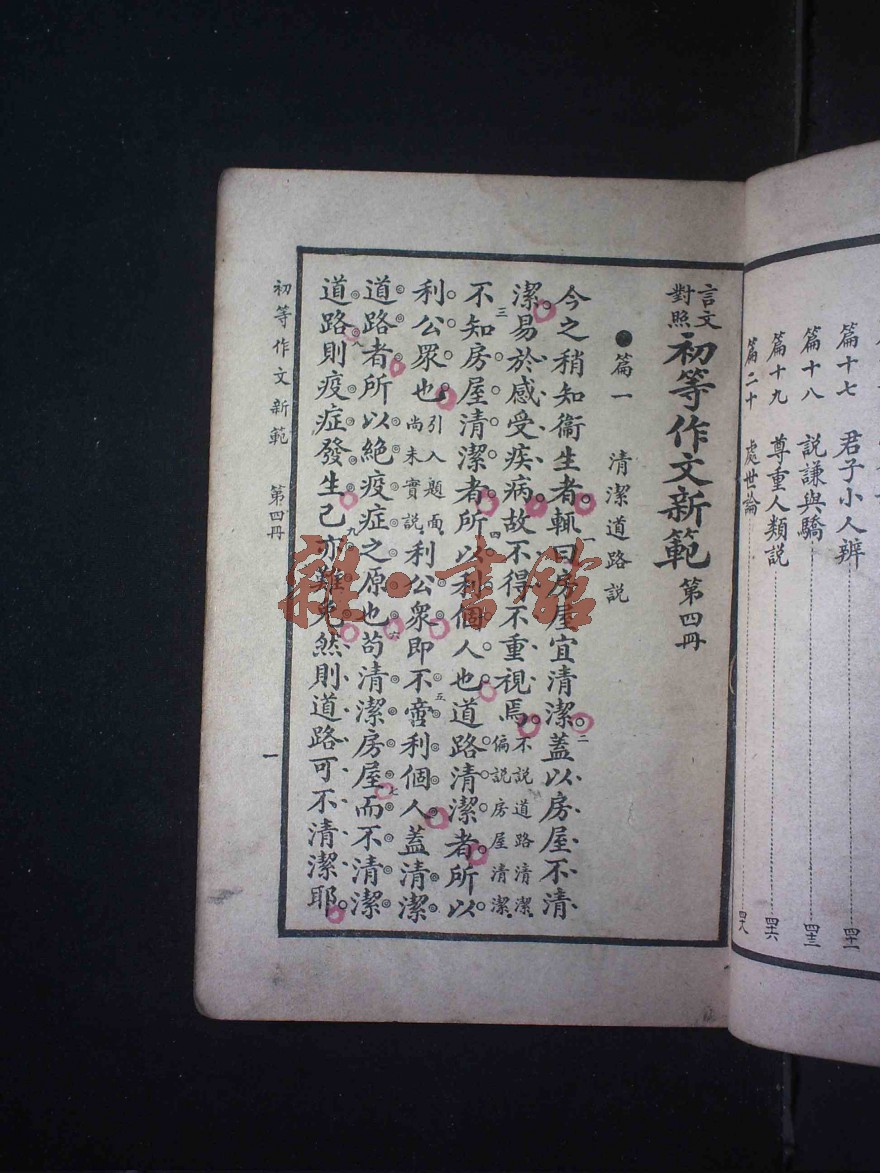 篇十七 君子小人辨
篇十八 說謙與驕 四十三
篇十九 尊重人類說 四十六
篇二十 處世論 四十八
言文對照 初等作文新範 第四冊
●篇一 清潔道路説
今之稍知衞生者輒一曰房屋宜清潔二蓋以房屋不清
潔易於感受疾病故不得不重視焉 不説道路清潔偏説房屋清潔
三不知房屋清潔者四所以利個人也道路清潔者所以
利公眾也 引入題面尚未實説 利公衆即不五啻利個人蓋清潔
道路者所以絕疫症之原也六苟清潔房屋七而不清潔
道路八則疫症發生九己亦難免然則道路可不清潔耶
初等作文新範 第四冊
一
雜·書館